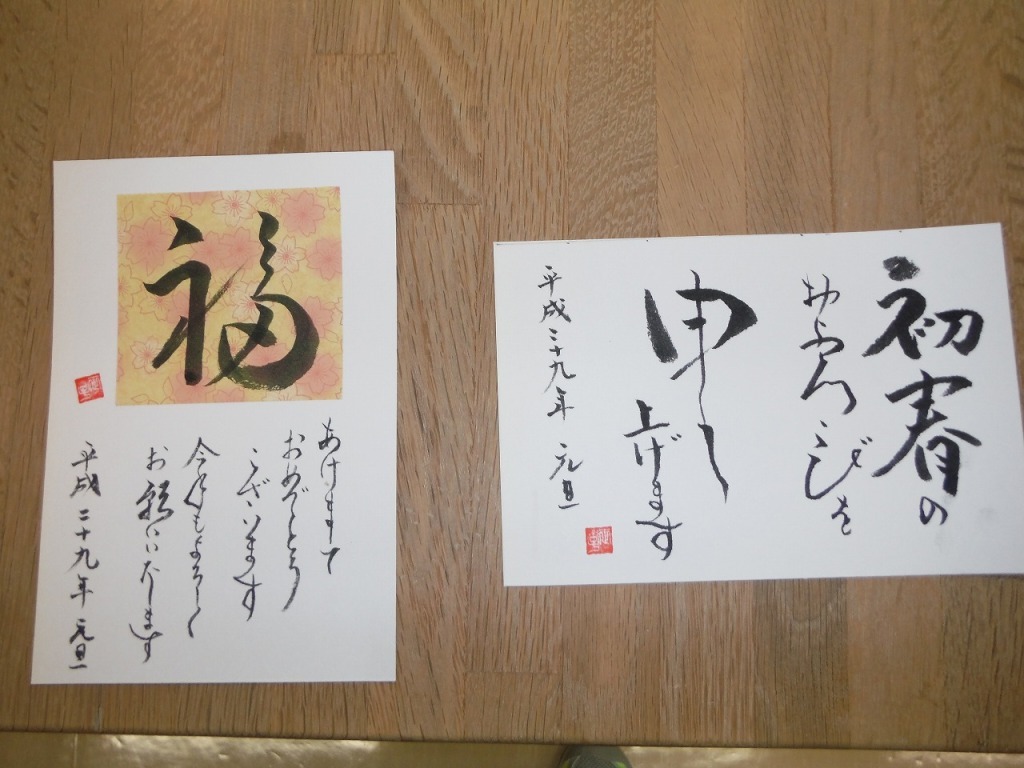 福
あけまして
おめでとう
ございます
今年もよろしく
お願いいたします
平成二十九年 元旦
初春の
およろこびを
申し
上げます
平成二十九年 元旦